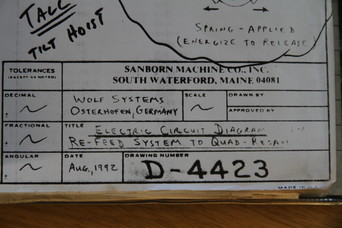 TALL
TILT HOIST
SPRING-APPLIED
(ENERGIZE TO RELEASE
TOLERANCES
(EXCEPT AS NOTED)
SANBORN MACHINE CO., INC.
SOUTH WATERFORD, MAINE 04081
DECIMAL
WOLF SYSTEMS
OSTERHOFEN, GERMANY
SCALE
DRAWN BY
APPROVED BY
FRACTIONAL
TITLE
ELECTRIC CIRCUIT DIAGRAM
RE-FEED SYSTEM TO QUAD-RESAW
ANGULAR
DATE
AUG, 1992
DRAWING NUMBER
D-4423
MADE IN